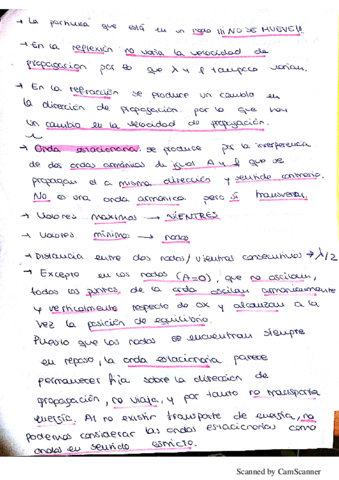 → La partícula que está en un nodo ¡¡¡NO SE MUEVE!!!
→ En la reflexión no varía la velocidad de
propagación por lo que λ y f tampoco varían.
→ En la refracción se produce un cambio en
la dirección de propagación, por lo que hay
un cambio en la velocidad de propagación.
→ Onda estacionaria: se produce por la interferencia
de dos ondas armónicas de igual A y f que se
propagan el a misma dirección y sentido contrario.
No es una onda armónica pero sí transversal.
→ Valores maximos → VIENTRES
→ Valores mínimos → nodos
→ Distancia entre dos nodos/vientres consecutivos → λ/2
→ Excepto en los nodos (A=0), que no oscilan,
todos los puntos de la onda oscilan armónicamente
y verticalmente respecto de OX y alcanzan a la
vez la posición de equilibrio.
Puesto que los nodos se encuentran siempre
en reposo, la onda estacionaria parece
permanecer fija sobre la dirección de
propagación, no viaja, y por tanto no transporta
energía. Al no existir transporte de energía, no
podemos considerar las ondas estacionarias como
ondas en sentido estricto.
Scanned by CamScanner